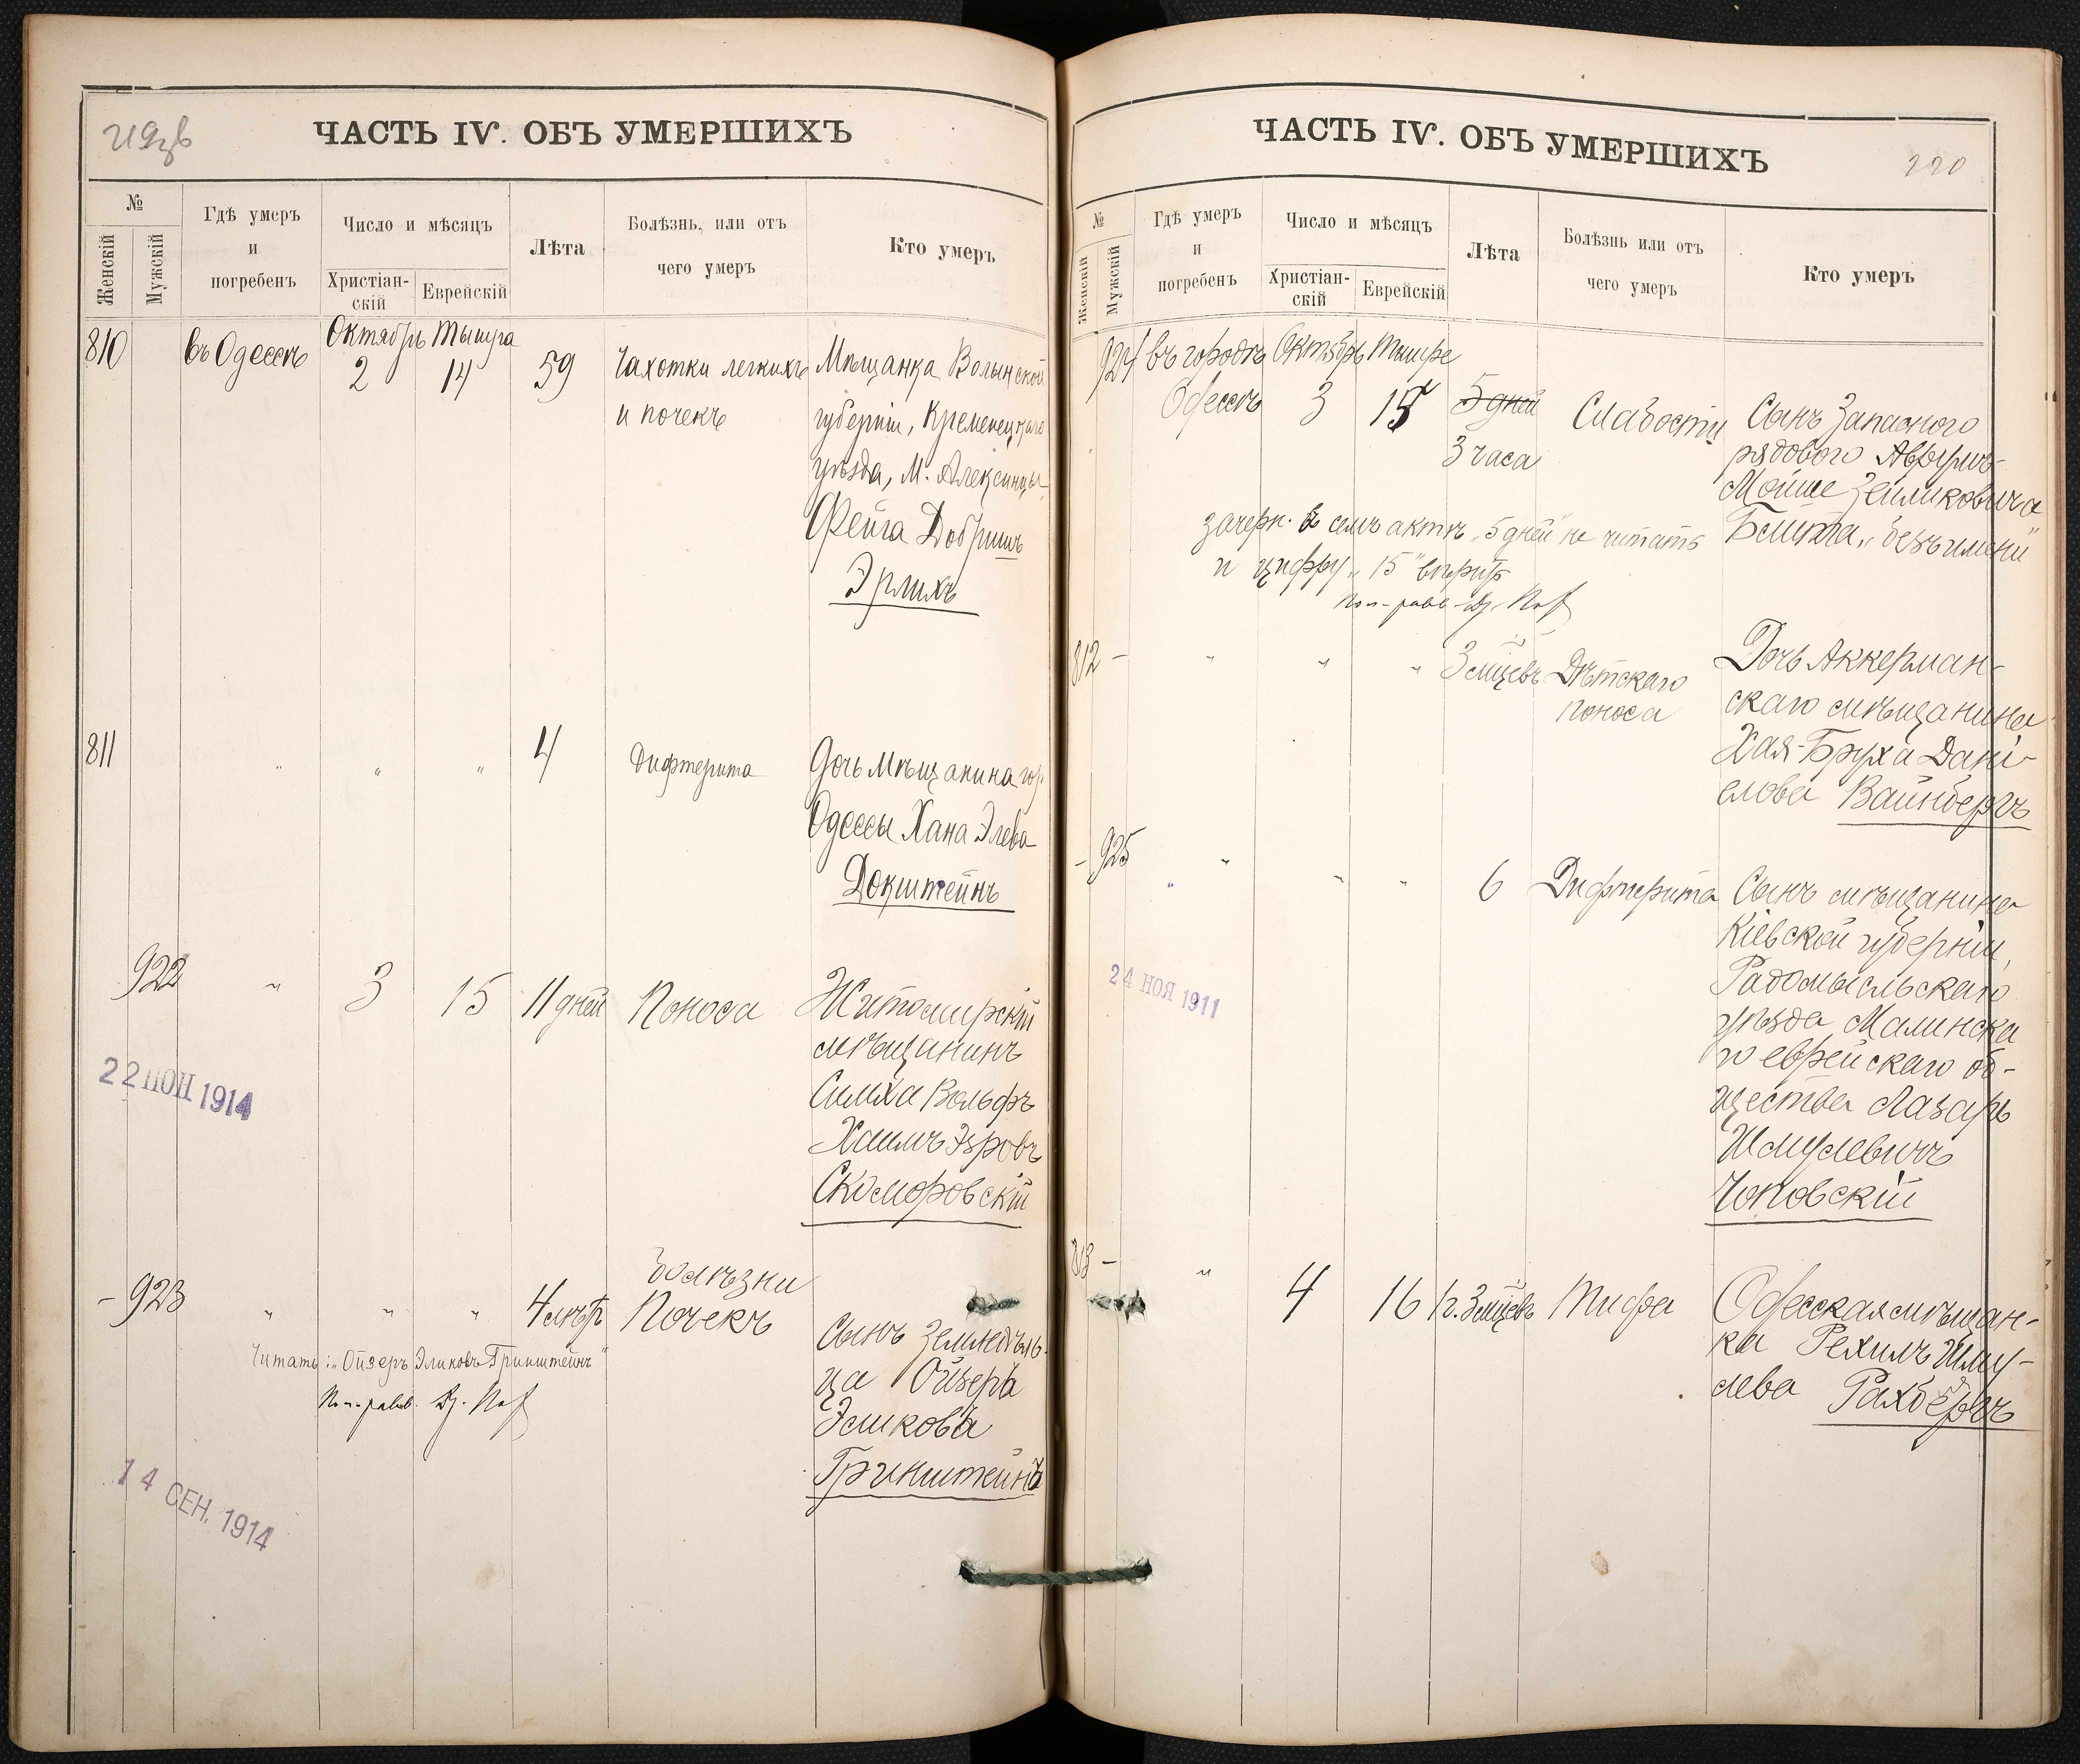 ЧАСТЬ IV. ОБЪ УМЕРШИХЪ
№
Женскій
Мужскій
Гдѣ умеръ
и
погребенъ
Число и мѣсяцъ
Христіан-
скій
Еврейскій
Лѣта
Болѣзнь, или отъ
чего умеръ
Кто умеръ
810
въ Одессѣ
Октябрь
2
Тышра
14
59
Чахотки легкихъ
и почекъ
Мѣщанка Волынской
губерніи, Кременецкаго
уѣзда, М. Алексинцы
Фейга Добришъ
Эрлихъ
811
"
"
"
4
Дифтерита
Дочь Мѣщанина гор.
Одессы Хана Элева
Докштейнъ
922
"
3
15
11 дней
Поноса
Житомирскій
мѣщанинъ
Симха Вольфъ
Хаимъ
Скоморовскій
22 ІЮН 1914
- 923
"
"
"
4 лѣтъ
Болѣзни
Почекъ
Сынъ Земледѣль-
ца Ойзеръ
Эликовъ
Гринштейнъ
Читать: "Ойзеръ Эликовъ Гринштейнъ"
14 СЕН. 1914
ЧАСТЬ IV. ОБЪ УМЕРШИХЪ
220
№
Женскій
Мужскій
Гдѣ умеръ
и
погребенъ
Число и мѣсяцъ
Христіан-
скій
Еврейскій
Лѣта
Болѣзнь или отъ
чего умеръ
Кто умеръ
924
въ городѣ
Одессѣ
Октябрь
3
Тышре
15
5 дней
3 часа
Слабости
Сынъ Запасного
рядового Аврумъ-
Мойше Зейликовича
Бейта, "безъ имени"
зачерк. въ семъ актѣ "5 дней" не читать
и цифру "15" вѣрить
812 -
"
"
"
3 мцевъ
Дѣтскаго
поноса
Дочь Аккерман-
скаго мѣщанина
Хая-Бруха Дані-
елова Вайнбергъ
- 925
"
"
"
6
Дифтерита
Сынъ мѣщанина
Кіевской губерніи,
Радомысльскаго
уѣзда Малинска
го еврейскаго об-
щества Лазарь
Шмулевичъ
Чоповскій
24 НОЯ 1911
813 -
"
4
16
1 г. 3 мцевъ
Тифа
Одесская мѣщан-
ка Рехиль Шму-
лева Рахбергъ